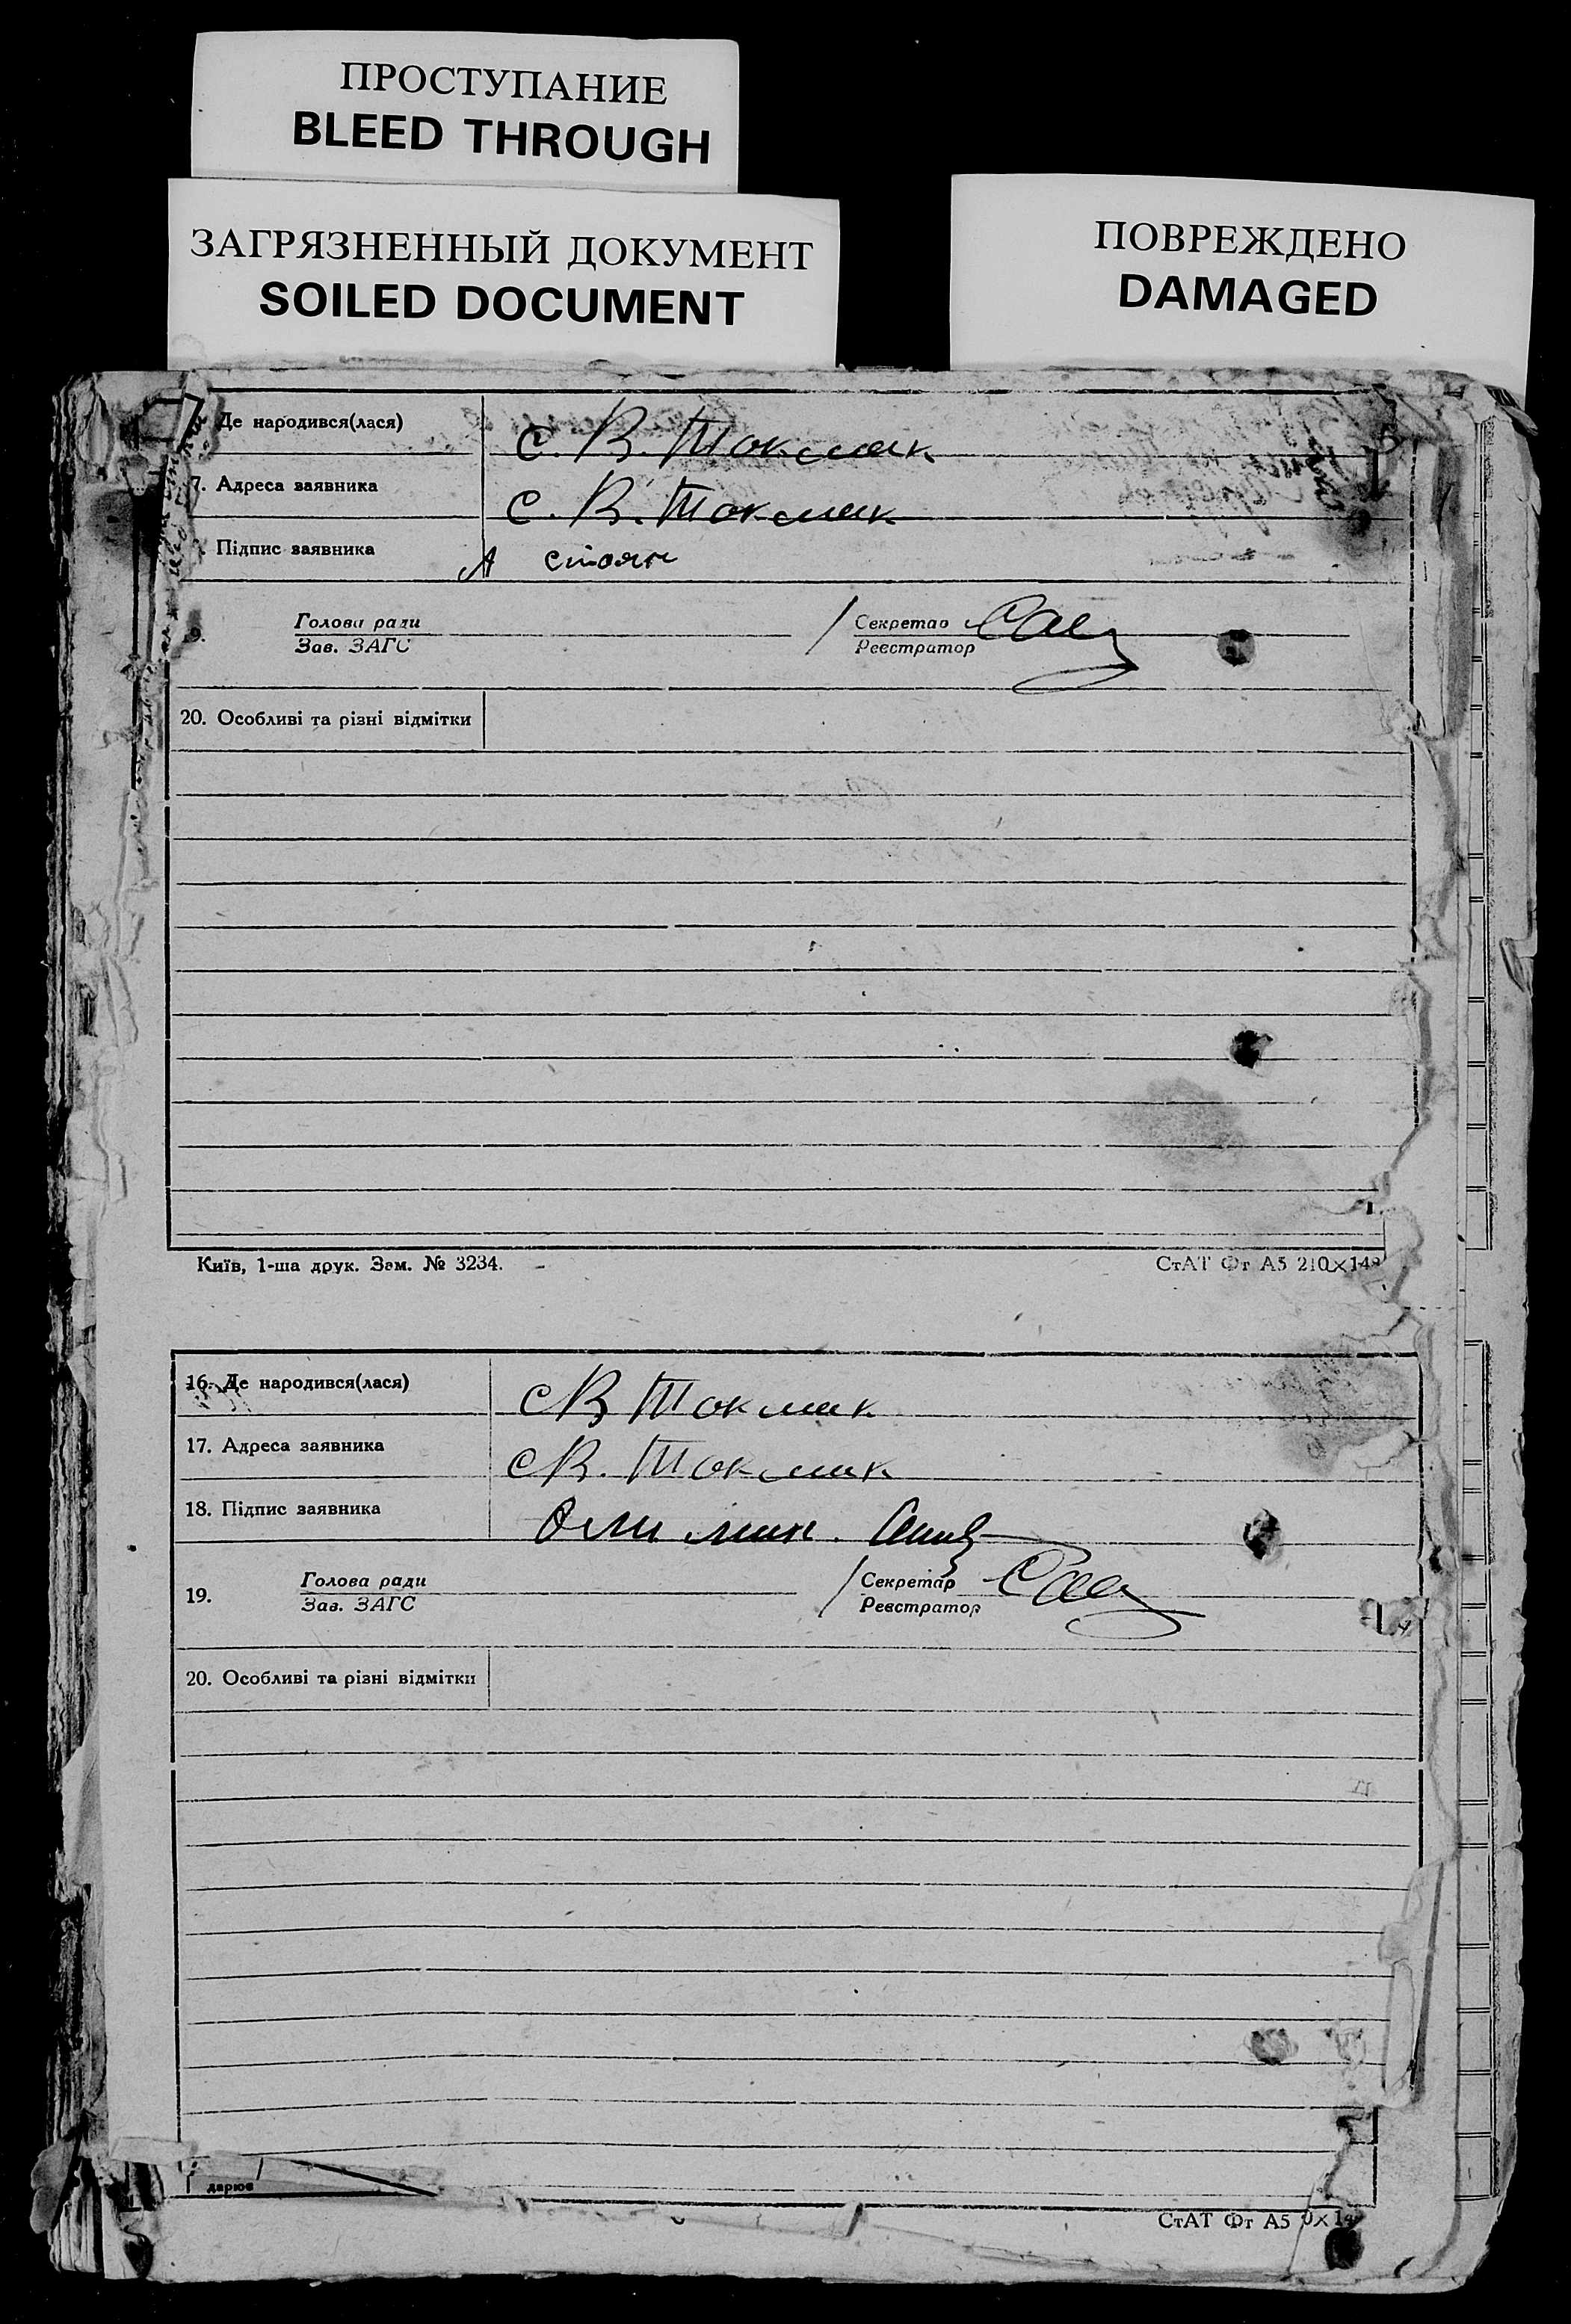 ПРОСТУПАНИЕ
BLEED THROUGH
ЗАГРЯЗНЕННЫЙ ДОКУМЕНТ
SOILED DOCUMENT
ПОВРЕЖДЕНО
DAMAGED
Де народився(лася) с. В. Токмак
7. Адреса заявника с. В. Токмак
Підпис заявника А стоян
9. Голова ради / Секретар
Зав. ЗАГС Реєстратор
20. Особливі та різні відмітки
Київ, 1-ша друк. Зам. № 3234.
СтАТ Фт А5 210×148
16. Де народився(лася) с В Токмак
17. Адреса заявника с В. Токмак
18. Підпис заявника
19. Голова ради / Секретар
Зав. ЗАГС Реєстратор
20. Особливі та різні відмітки
СтАТ Фт А5 0×14